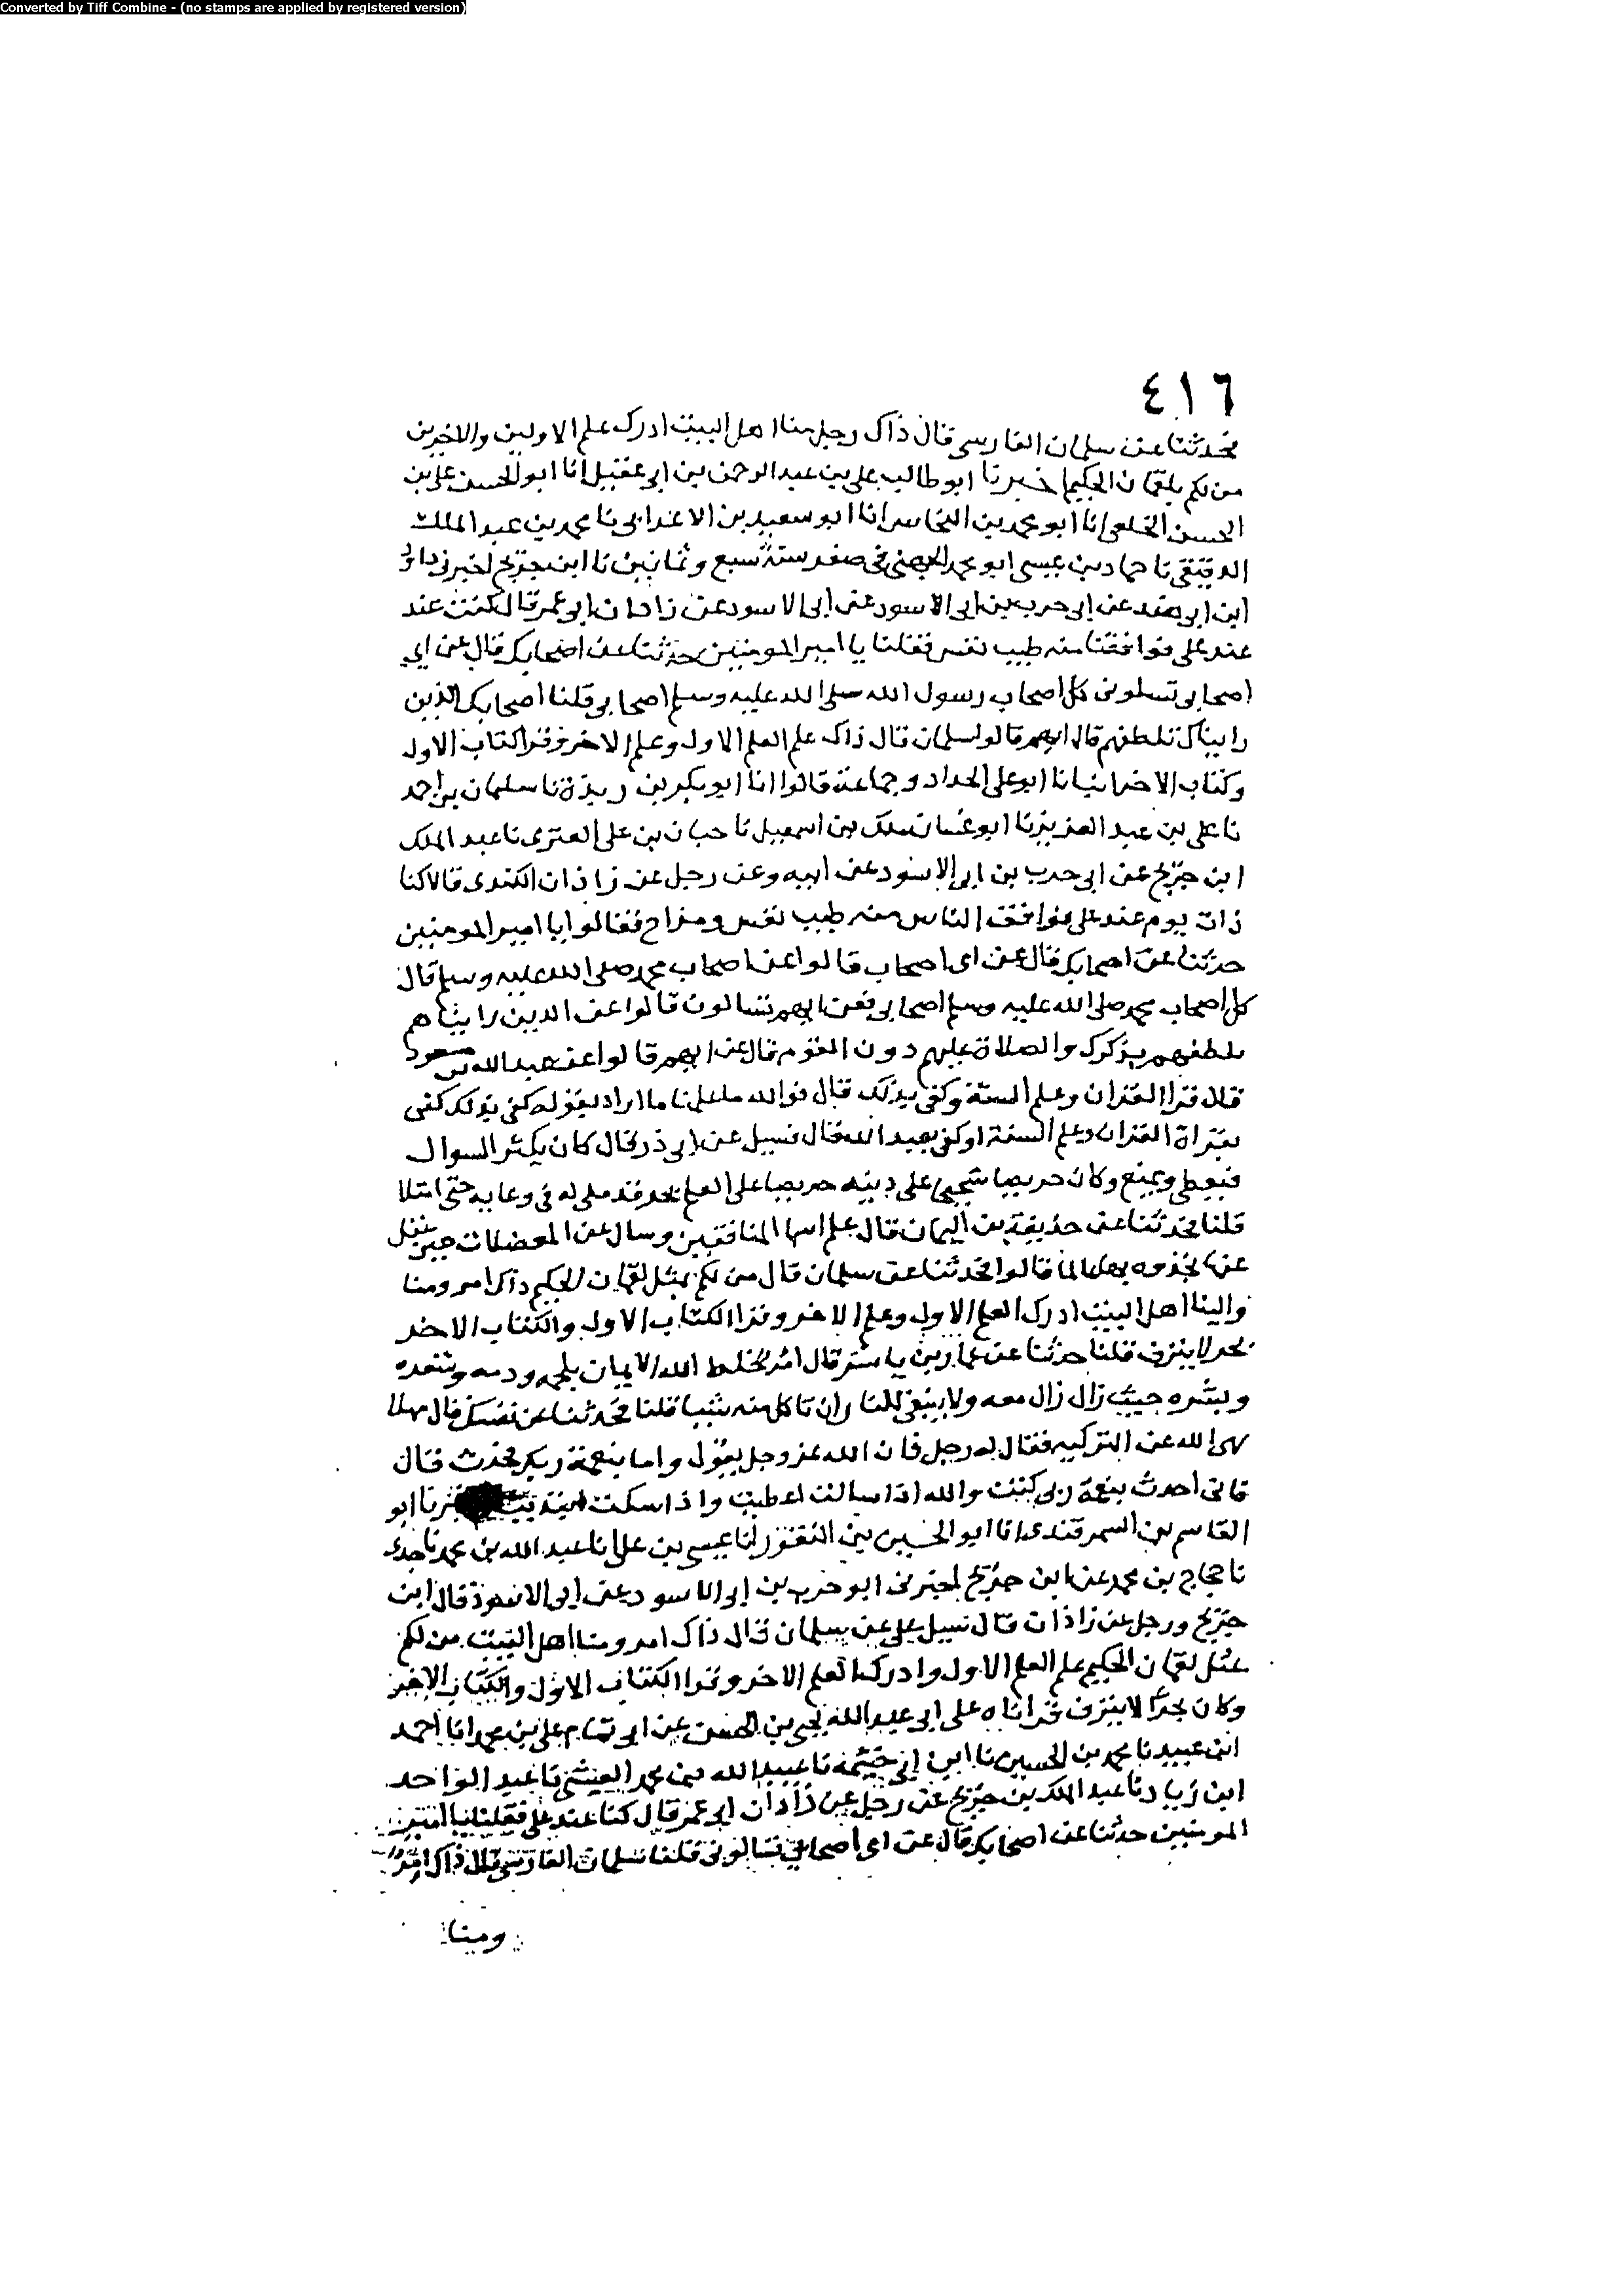 Converted by Tiff Combine - (no stamps are applied by registered version)
٤١٦
فحدثنا عن سلمان الفارسي قال ذاك رجل منا اهل البيت ادرك علم الاولين والاخرين
من لكم بلقمان الحكيم اخبرنا ابو طالب علي بن عبد الرحمن بن ابي عقيل انا ابو الحسن علي بن
الحسن الخلعي انا ابو محمد بن النحاس انا ابو سعيد بن الاعرابي نا محمد بن عبد الملك
الدقيقي نا حماد بن عيسى ابو محمد الجهني في صفر سنة سبع وثمانين نا ابن جريج اخبرني داود
ابن ابي هند عن ابي حرب بن ابي الاسود عن ابي الاسود عن زاذان ابي عمر قال كنت عند
عند علي فوافقنا منه طيب نفس فقلنا يا امير المومنين حدثنا عن اصحابك قال عن اي
اصحابي تسلوني كل اصحاب رسول الله صلى الله عليه وسلم اصحابي قلنا اصحابك الذين
رايناك تلطفهم قال ايهم قالوا سلمان قال ذاك علم العلم الاول وعلم الاخر وقرا كتاب الاول
وكتاب الاخر انبانا ابو علي الحداد وجماعة قالوا انا ابو بكر بن ريذة نا سلمان بن احمد
نا علي بن عبد العزيز نا ابو غسان ملك بن اسمعيل نا حبان بن علي العنزى نا عبد الملك
ابن جريج عن ابي حرب بن ابي الاسود عن ابيه وعن رجل عن زاذان الكندى قالا كنا
ذات يوم عند علي فوافق الناس منه طيب نفس ومزاح فقالوا يا امير المومنين
حدثنا عن اصحابك قال عن اي اصحاب قالوا عن اصحاب محمد صلى الله عليه وسلم قال
كل اصحاب محمد صلى الله عليه وسلم اصحابي فعن ايهم تسالون قالوا عن الذين رايناهم
تلطفهم بذكرك والصلاة عليهم دون القوم قال عن ايهم قالوا عن عبد الله بن مسعود
قال قرا القران وعلم السنة وكفى بذلك قال فوالله ما علمنا ما اراد بقوله كفى بذلك كفى
بقراة القران وعلم السنة او كفى بعبد الله قال فسيل عن ابي ذر فقال كان يكثر السوال
فيعطى ويمنع وكان حريصا شحيحا على دينه حريصا على العلم بحر قد ملى له في وعايه حتى امتلا
قلنا فحدثنا عن حذيفة بن اليمان قال علم اسما المنافقين وسال عن المعضلات حين غفل
عنها تجدوه بها عالما قالوا فحدثنا عن سلمان قال من لكم بمثل لقمان الحكيم ذاك امرو منا
والينا اهل البيت ادرك العلم الاول وعلم الاخر وقرا الكتاب الاول والكتاب الاخر
بحر لا ينزف قلنا حدثنا عن عمار بن ياسر قال امرؤ خلط الله الايمان بلحمه ودمه وشعره
وبشره حيث زال زال معه ولا ينبغي للنار ان تاكل منه شيا قلنا فحدثنا عن نفسك قال مهلا
نهى الله عن التزكية فقال له رجل فان الله عز وجل يقول واما بنعمة ربك فحدث قال
فاني احدث بنعمة ربي كنت والله اذا سالت اعطيت واذا سكت ابتديت اخبرنا ابو
القاسم بن السمرقندي انا ابو الحسين بن النقور انا عيسى بن علي انا عبد الله بن محمد نا جدى
نا حجاج بن محمد عن ابن جريج اخبرني ابو حرب بن ابي الاسود عن ابي الاسود قال ابن
جريج ورجل عن زاذان قال سيل علي عن سلمان قال ذاك امرو منا اهل البيت من لكم
بمثل لقمان الحكيم علم العلم الاول وادرك العلم الاخر وقرا الكتاب الاول والكتاب الاخر
وكان بحرا لا ينزف قراناه على ابي عبد الله يحيى بن الحسن عن ابي تمام علي بن محمد انا احمد
ابن عبيد نا محمد بن الحسين نا ابن ابي خيثمة نا عبيد الله بن محمد العيشي نا عبد الواحد
ابن زياد نا عبد الملك بن جريج عن رجل عن زاذان ابي عمر قال كنا عند علي فقلنا يا امير
المومنين حدثنا عن اصحابك قال عن اى اصحابي تسالوني قلنا سلمان الفارسي قال ذاك امرؤ
ومنا